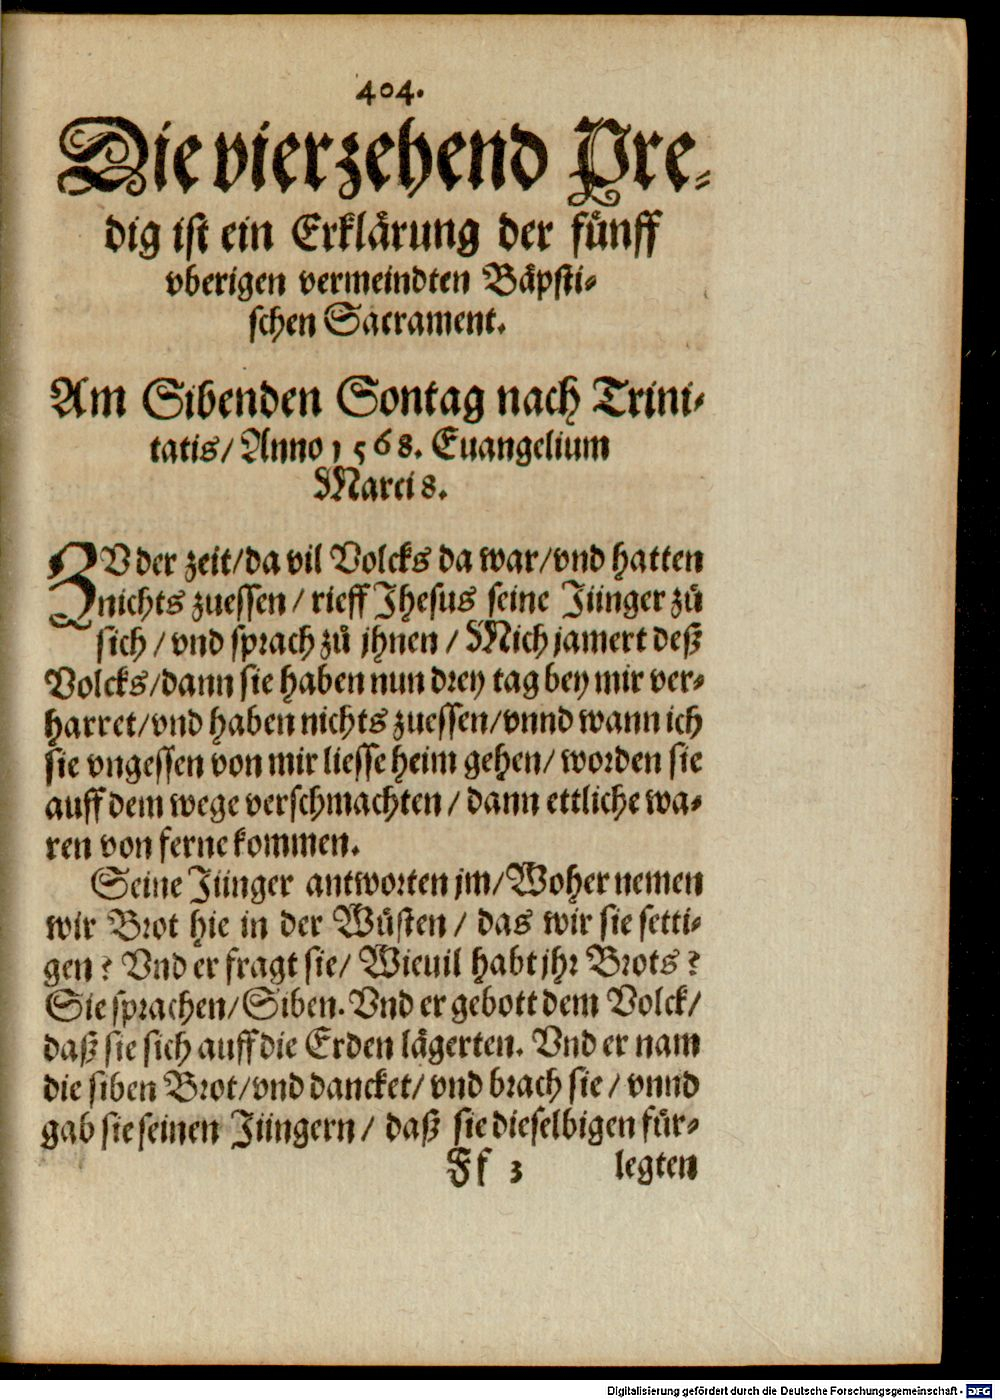 404.
Die vierzehend Pre⸗
dig ist ein Erklärung der fünff
vberigen vermeindten Bäpsti⸗
schen Sacrament.
Am Sibenden Sontag nach Trini⸗
tatis/ Anno 1568. Euangelium
Marci 8.
ZV der zeit/ da vil Volcks da war/ vnd hatten
nichts zuessen/ rieff Jhesus seine Jünger zů
sich/ vnd sprach zů jhnen/ Mich jamert deß
Volcks/ dann sie haben nun drey tag bey mir ver⸗
harret/ vnd haben nichts zuessen/ vnnd wann ich
sie vngessen von mir liesse heim gehen/ worden sie
auff dem wege verschmachten/ dann ettliche wa⸗
ren von ferne kommen.
Seine Jünger antworten jm/ Woher nemen
wir Brot hie in der Wüsten/ das wir sie setti⸗
gen? Vnd er fragt sie/ Wieuil habt jhr Brots?
Sie sprachen/ Siben. Vnd er gebott dem Volck/
daß sie sich auff die Erden lägerten. Vnd er nam
die siben Brot/ vnd dancket/ vnd brach sie/ vnnd
gab sie seinen Jüngern/ daß sie dieselbigen für⸗
Ff 3 legten
Digitalisierung gefördert durch die Deutsche Forschungsgemeinschaft - DFG